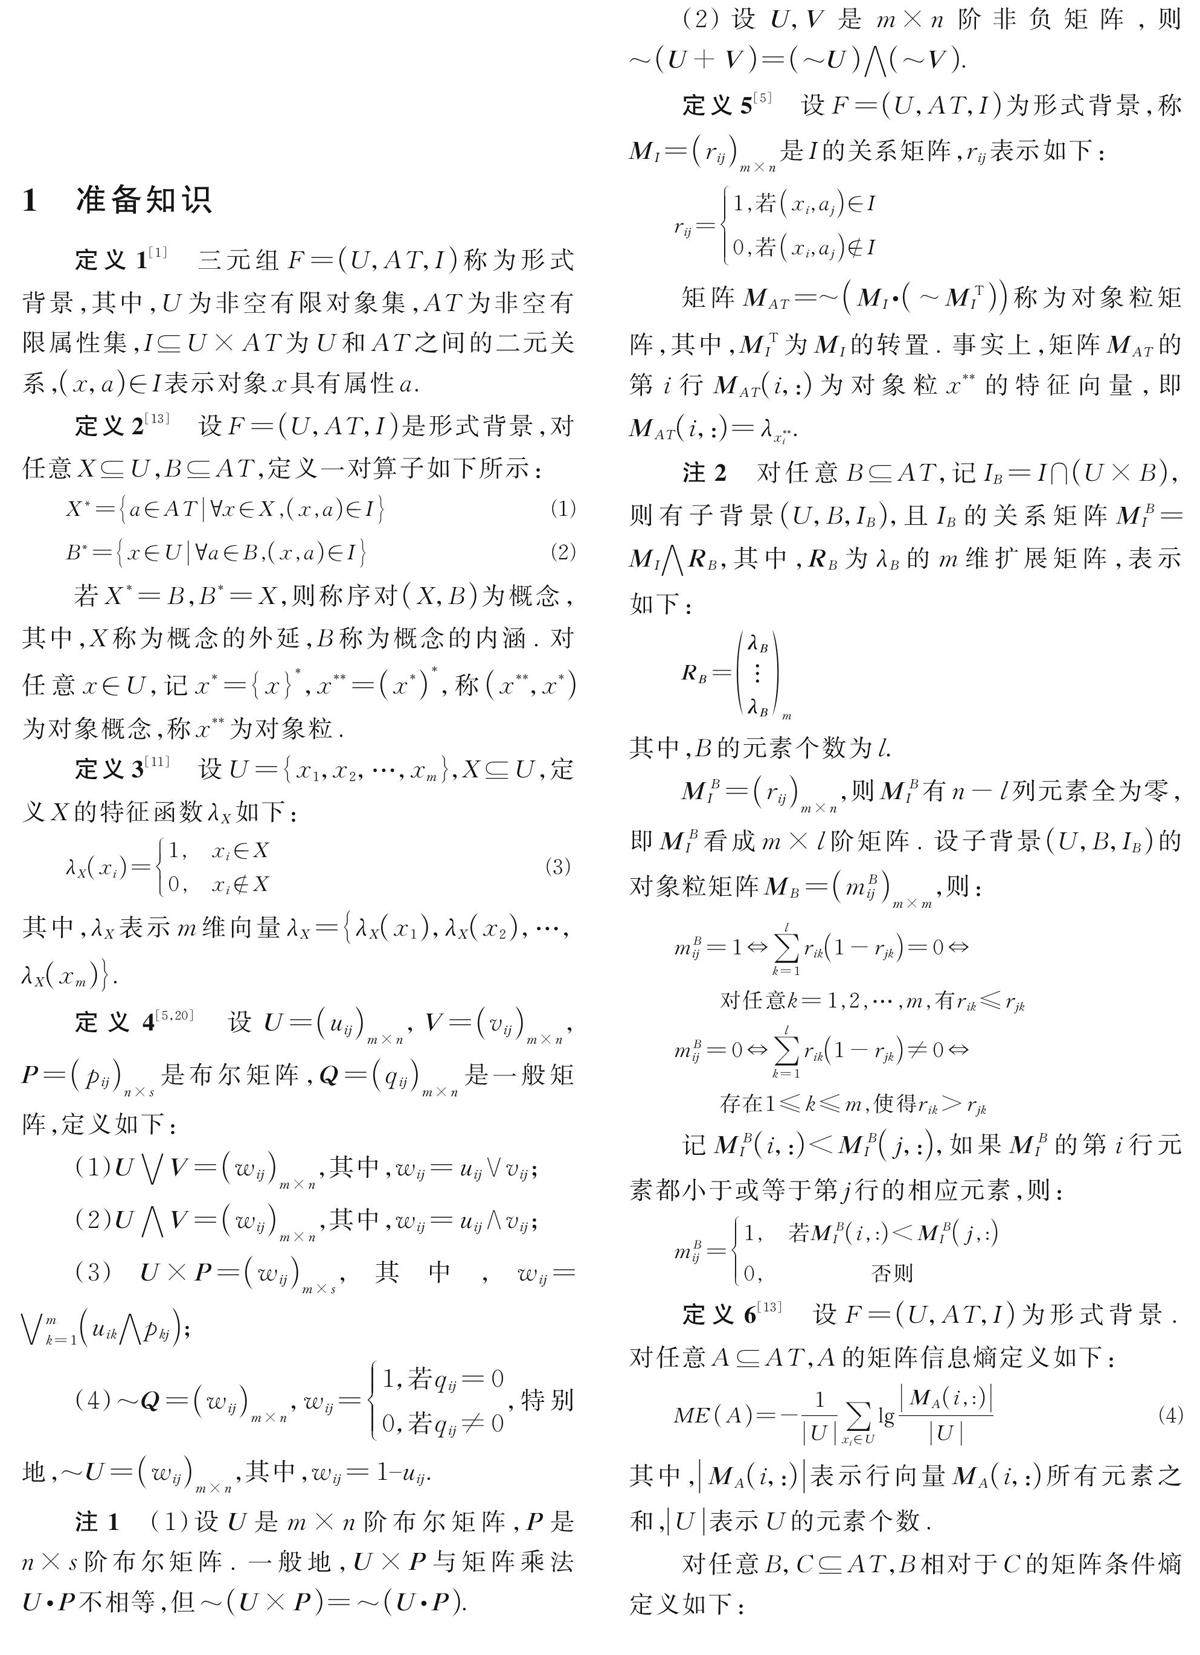 1 准备知识
定义 1[1] 三元组 F=(U,AT,I)称为形式
背景,其中,U 为非空有限对象集,AT 为非空有
限属性集,I⊆U×AT为U和AT之间的二元关
系,(x,a)∈I表示对象x具有属性a.
定义2[13] 设F=(U,AT,I)是形式背景,对
任意X⊆U,B⊆AT,定义一对算子如下所示:
X*={a∈AT|∀x∈X,(x,a)∈I} (1)
B*={x∈U|∀a∈B,(x,a)∈I} (2)
若X*=B,B*=X,则称序对(X,B)为概念,
其中,X称为概念的外延,B称为概念的内涵. 对
任意x∈U,记x*={x}*,x**=(x*)*,称(x**,x*)
为对象概念,称x**为对象粒.
定义3[11] 设U={x1,x2,…,xm},X⊆U,定
义X的特征函数λX如下:
λX(xi)={1, xi∈X
0, xi∉X (3)
其中,λX表示m维向量λX={λX(x1),λX(x2),…,
λX(xm)}.
定义 4[5,20] 设 U=(uij)m×n, V=(vij)m×n,
P=(pij)n×s是布尔矩阵,Q=(qij)m×n是一般矩
阵,定义如下:
(1)U⋁V=(wij)m×n,其中,wij=uij∨vij;
(2)U⋀V=(wij)m×n,其中,wij=uij∧vij;
(3) U×P=(wij)m×s, 其中, wij=
⋁m k=1(uik⋀pkj);
(4)~Q=(wij)m×n,wij={1,若qij=0
0,若qij≠0,特别
地,~U=(wij)m×n,其中,wij=1-uij.
注 1 (1)设 U 是 m×n 阶布尔矩阵,P 是
n×s阶布尔矩阵. 一般地,U×P与矩阵乘法
U•P不相等,但~(U×P)=~(U•P).
(2)设 U,V 是 m×n 阶非负矩阵,则
~(U+V)=(~U)⋀(~V).
定义5[5] 设F=(U,AT,I)为形式背景,称
MI=(rij)m×n是I的关系矩阵,rij表示如下:
rij={1,若(xi,aj)∈I
0,若(xi,aj)∉I
矩阵MAT=~(MI•(~MIT))称为对象粒矩
阵,其中,MIT为MI的转置. 事实上,矩阵MAT的
第 i 行 MAT(i,:)为对象粒 x** 的特征向量,即
MAT(i,:)=λxi**.
注 2 对任意B⊆AT,记IB=I∩(U×B),
则有子背景(U,B,IB),且IB的关系矩阵MIB=
MI⋀RB,其中,RB为λB的m维扩展矩阵,表示
如下:
RB=(λB
⋮
λB)m
其中,B的元素个数为l.
MIB=(rij)m×n,则MIB有n-l列元素全为零,
即MIB看成m×l阶矩阵. 设子背景(U,B,IB)的
对象粒矩阵MB=(mijB)m×m,则:
mijB=1⇔∑k=1l rik(1-rjk)=0⇔
对任意k=1,2,…,m,有rik≤rjk
mijB=0⇔∑k=1l rik(1-rjk)≠0⇔
存在1≤k≤m,使得rik>rjk
记MIB(i,:)<MIB(j,:),如果MIB的第i行元
素都小于或等于第j行的相应元素,则:
mijB={1, 若MIB(i,:)<MIB(j,:)
0, 否则
定义6[13] 设F=(U,AT,I)为形式背景.
对任意A⊆AT,A的矩阵信息熵定义如下:
ME(A)=-1/|U| ∑xi∈U lg |MA(i,:)|/|U| (4)
其中,|MA(i,:)|表示行向量MA(i,:)所有元素之
和,|U|表示U的元素个数.
对任意B,C⊆AT,B相对于C的矩阵条件熵
定义如下: